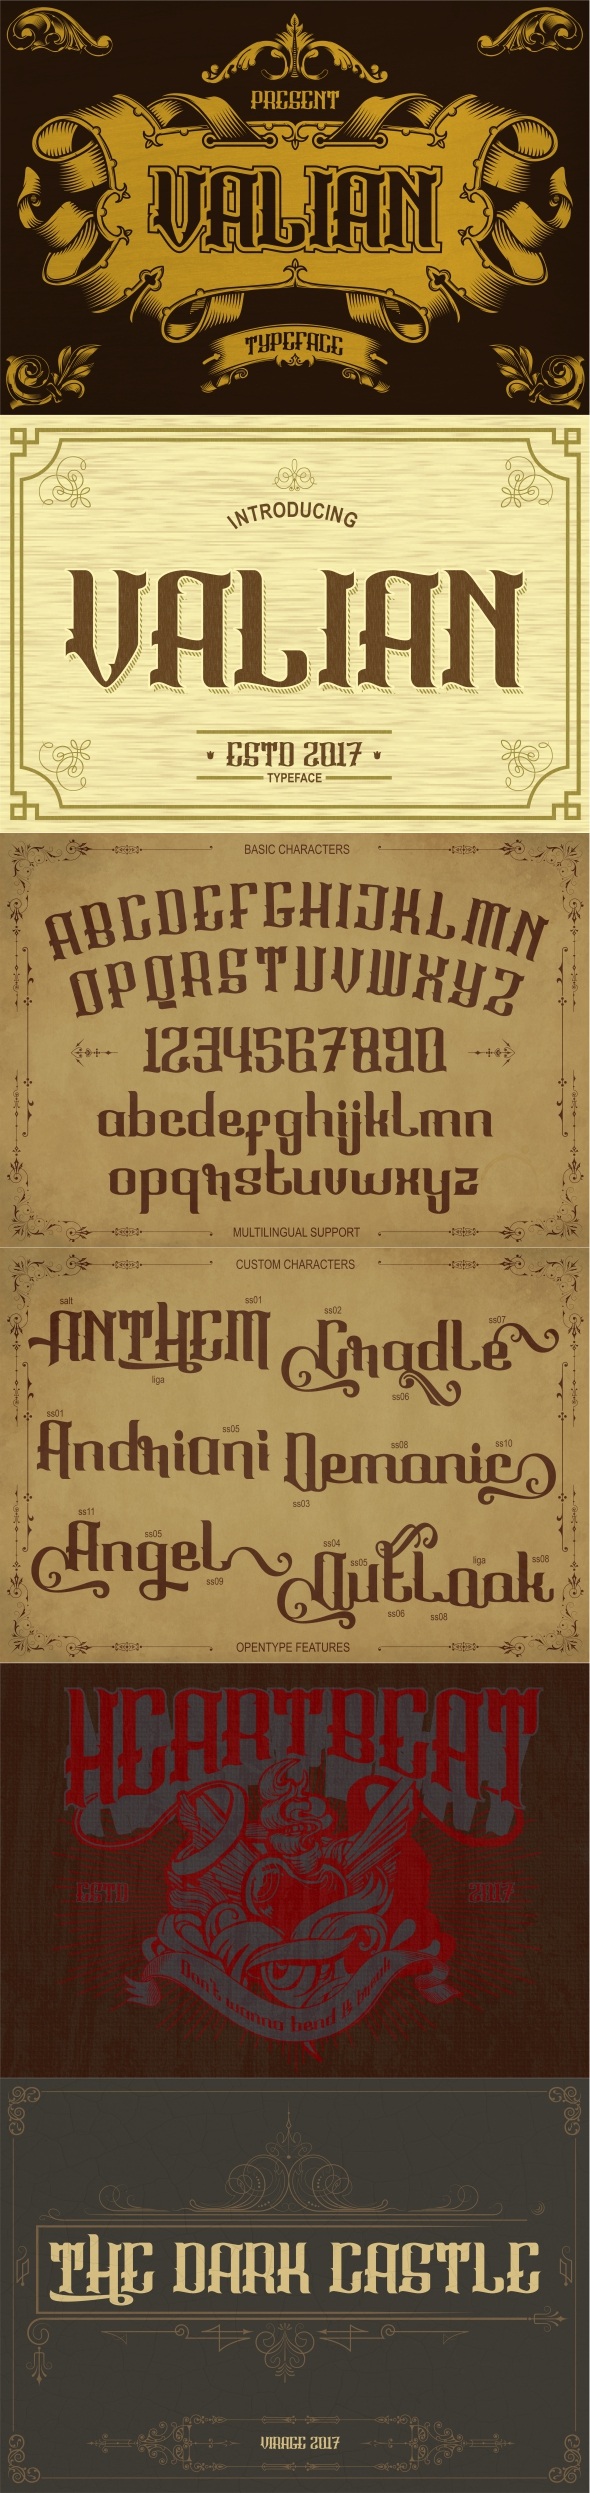 PRESENT
VALIAN
TYPEFACE
INTRODUCING
VALIAN
ESTD 2017
TYPEFACE
BASIC CHARACTERS
ABCDEFGHIJKLMN
OPQRSTUVWXYZ
1234567890
abcdefghijklmn
opqrstuvwxyz
MULTILINGUAL SUPPORT
CUSTOM CHARACTERS
salt ss01
ANTHEM
liga
ss02 ss07
Cradle
ss06
ss01 ss05
Andriani
ss08 ss10
Demonic
ss03
ss11 ss05
Angel
ss09
ss04 ss05 liga ss08
Outlook
ss06 ss08
OPENTYPE FEATURES
HEARTBEAT
ESTD 2017
Don't wanna bend & break
THE DARK CASTLE
VIRAGE 2017